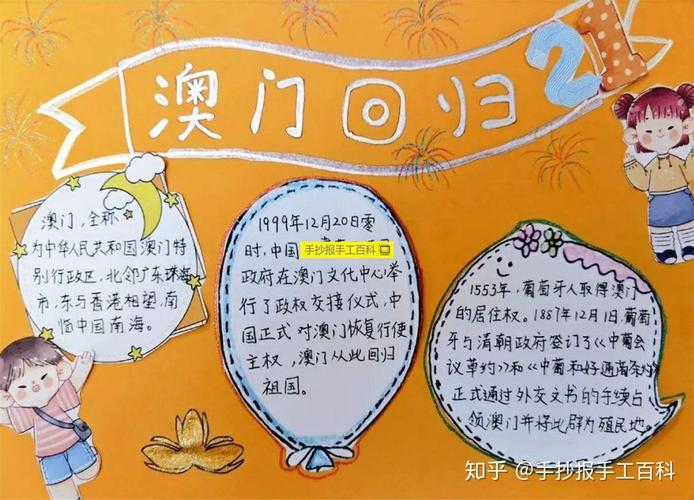 澳门回归 21
澳门,全称
为中华人民共和国澳门特
别行政区,北邻广东珠海
市,东与香港相望,南
临中国南海。
1999年12月20日零
时,中国
手抄报手工百科
政府在澳门文化中心举
行了政权交接仪式,中
国正式对澳门恢复行使
主权,澳门从此回归
祖国。
1553年,葡萄牙人取得澳门
的居住权。1887年12月1日葡萄
牙与清朝政府签订了《中葡会
议草约》和《中葡和好通商条约》
正式通过外交文书的手续占
领澳门并将此辟为殖民地。
知乎 @手抄报手工百科